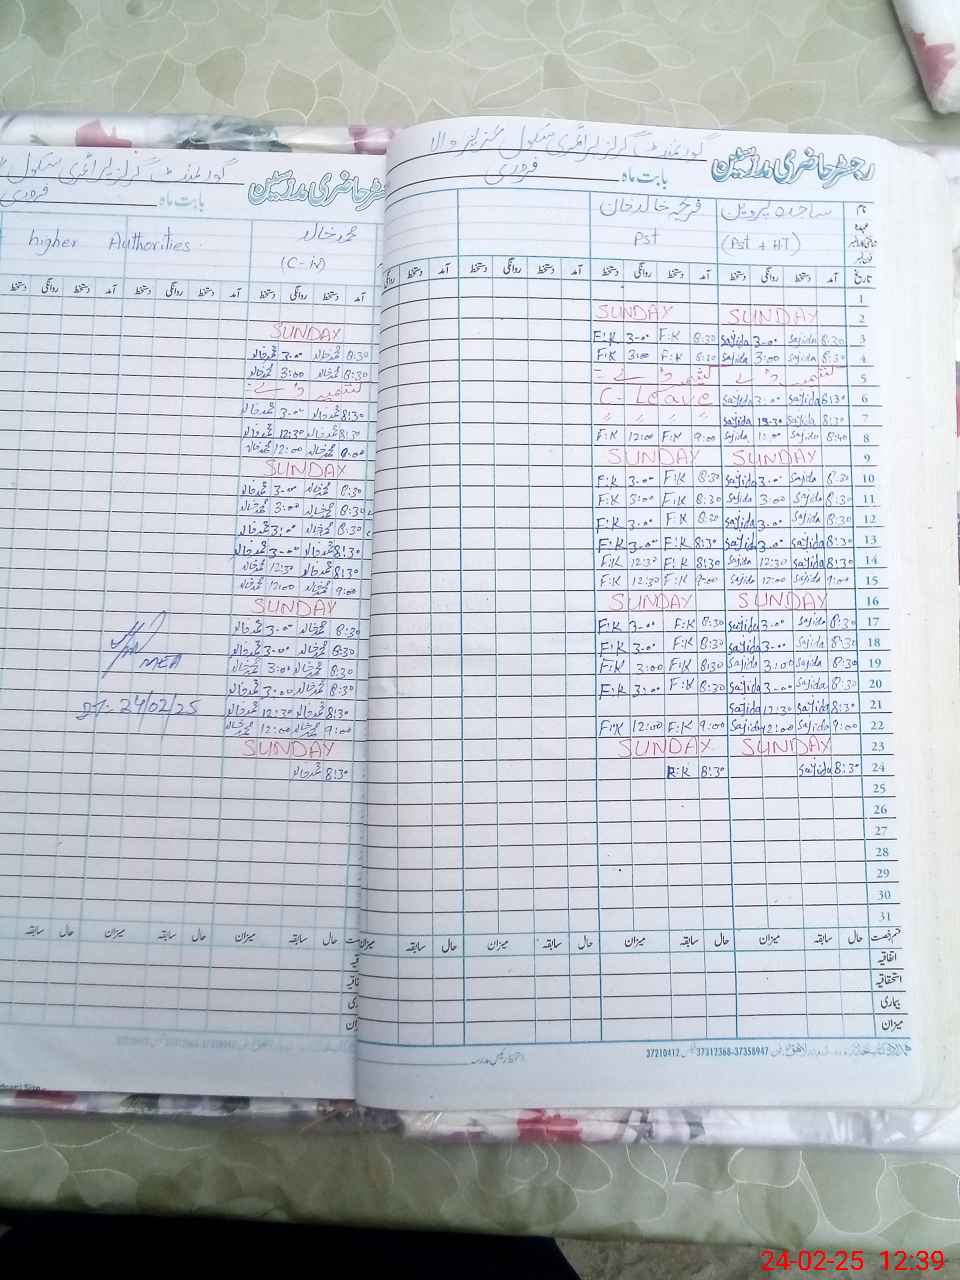 گورنمنٹ گرلز پرائمری سکول
رجسٹر حاضری مدرسین
بابت ماہ فروری
نام
ساجدہ پروین
فرحہ خالد خان
(Pst + HT)
Pst
تاریخ آمد دستخط روانگی دستخط آمد دستخط روانگی دستخط آمد دستخط روانگی دستخط آمد دستخط
1
2 SUNDAY SUNDAY
3 Sajida 3-00 Sajida 8:30 F:K 3-00 F:K 8:30
4 Sajida 3:00 Sajida 8:30 F:K 3:00 F:K 8:30
5
6 Sajida 3:00 Sajida 8:30 C-Leave
7 Sajida 12-30 Sajida 8:30 " " " "
8 Sajida Sajida 8:40 F:K 12:00 F:K 9:00
9 SUNDAY SUNDAY
10 Sajida 3-00 Sajida 8:30 F:K 3-00 F:K 8:30
11 Sajida 3:00 Sajida 8:30 F:K 3:00 F:K 8:30
12 Sajida 3-00 Sajida 8:30 F:K 3-00 F:K 8:30
13 Sajida 3-00 Sajida 8:30 F:K 3-00 F:K 8:30
14 Sajida 12:30 Sajida 8:30 F:K 12:30 F:K 8:30
15 Sajida 12:00 Sajida 9:00 F:K 12:30 F:K 9:00
16 SUNDAY SUNDAY
17 Sajida 3-00 Sajida 8:30 F:K 3-00 F:K 8:30
18 Sajida 3-00 Sajida 8:30 F:K 3-00 F:K 8:30
19 Sajida 3:00 Sajida 8:30 F:K 3:00 F:K 8:30
20 Sajida 3-00 Sajida 8:30 F:K 3:00 F:K 8:30
21 Sajida 12:30 Sajida 8:30
22 Sajida 12:00 Sajida 9:00 F:K 12:00 F:K 9:00
23 SUNDAY SUNDAY
24 Sajida 8:30 F:K 8:30
25
26
27
28
29
30
31
قسم رخصت حال سابقہ میزان حال سابقہ میزان حال سابقہ میزان حال سابقہ
اتفاقیہ
استحقاقیہ
بیماری
میزان
37210412 37312368-37358947
گورنمنٹ گرلز پرائمری سکول
رجسٹر حاضری مدرسین
بابت ماہ فروری
محمد خالد
(C-iv)
higher Authorities
آمد دستخط روانگی دستخط آمد دستخط روانگی دستخط آمد دستخط روانگی دستخط
SUNDAY
محمد خالد 3-00 محمد خالد 8:30
محمد خالد 3:00 محمد خالد 8:30
محمد خالد 3-00 محمد خالد 8:30
محمد خالد 12:30 محمد خالد 8:30
محمد خالد 12:00 محمد خالد 9:00
SUNDAY
محمد خالد 3-00 محمد خالد 8:30
محمد خالد 3:00 محمد خالد 8:30
محمد خالد 3:00 محمد خالد 8:30
محمد خالد 3-00 محمد خالد 8:30
محمد خالد 12:30 محمد خالد 8:30
محمد خالد 12:00 محمد خالد 9:00
SUNDAY
محمد خالد 3-00 محمد خالد 8:30
محمد خالد 3-00 محمد خالد 8:30
محمد خالد 3:00 محمد خالد 8:30
محمد خالد 3-00 محمد خالد 8:30
محمد خالد 12:30 محمد خالد 8:30
محمد خالد 12:00 محمد خالد 9:00
SUNDAY
محمد خالد 8:30
MEA
DT:- 24/02/25
حال سابقہ میزان حال سابقہ میزان حال سابقہ
24-02-25 12:39